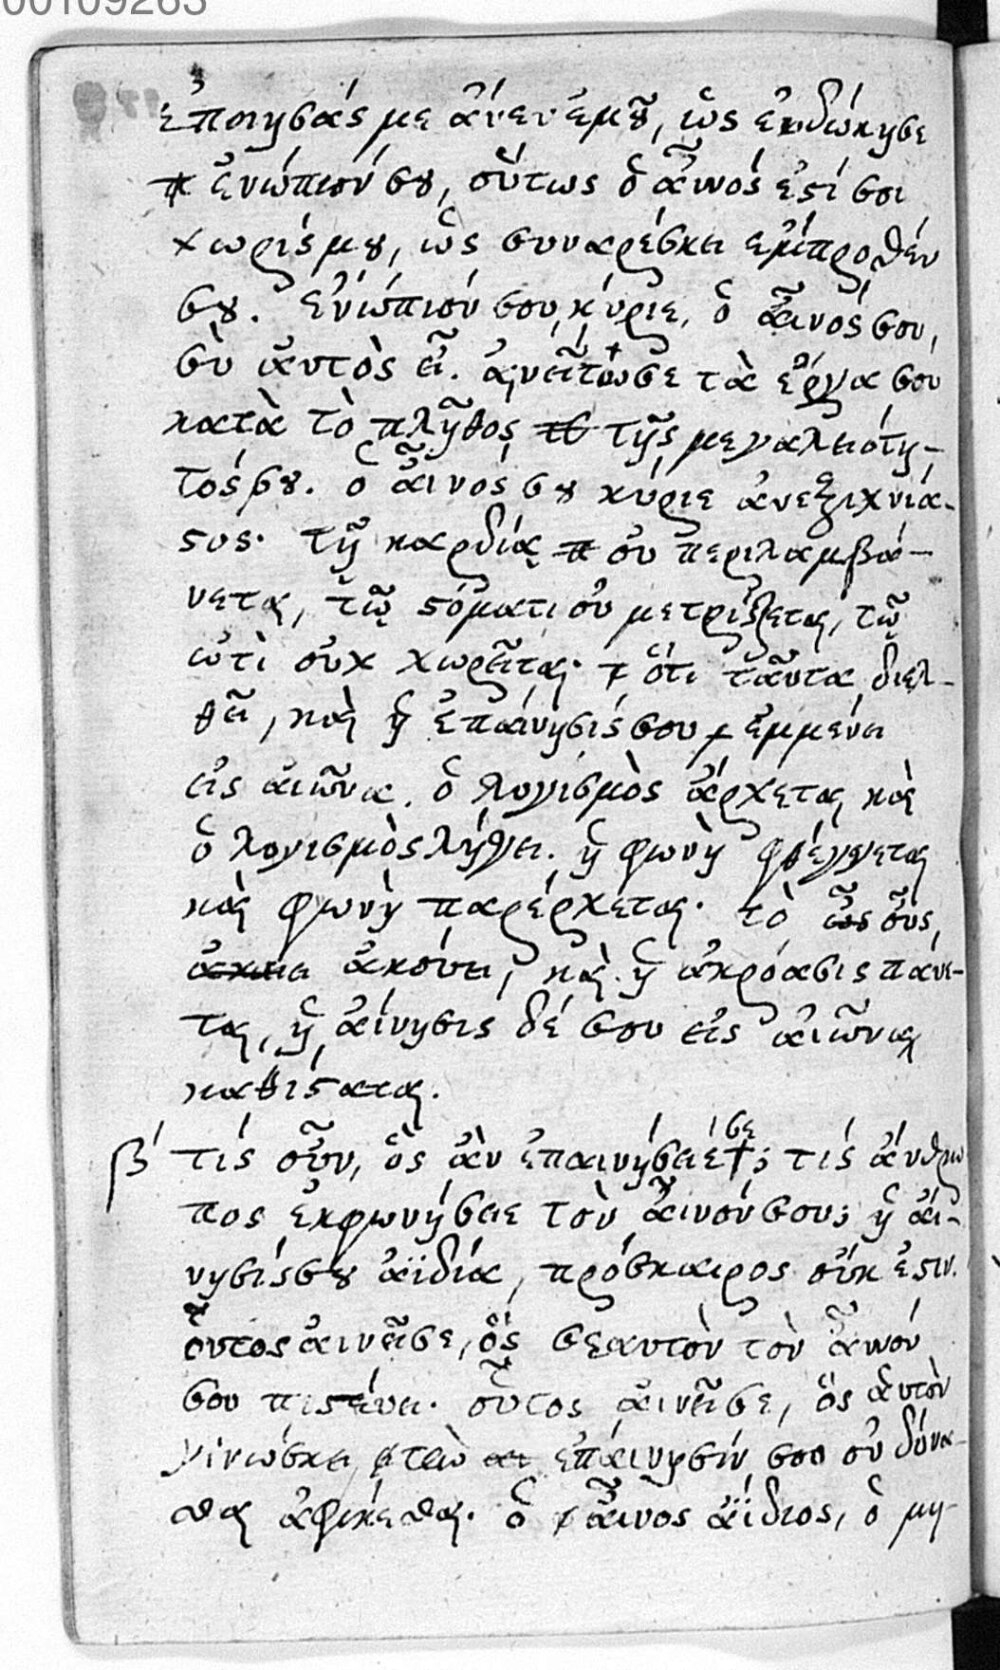 00109263
ἐποιησάς με ἀνευ ἐμοῦ, ὡς εὐδώκησε
ἐνώπιόν σου, οὕτως ὁ αἶνος ἐστί σοι
χωρίς μου, ὡς συναρέσκει ἐμπροσθέν
σου. ἐνώπιόν σου, κύριε, ὁ αἶνός σου,
σὺ αὐτὸς εἶ. αἰνείτωσε τὰ ἔργα σου
κατὰ τὸ πλῆθος τῆς μεγαλειότη-
τός σου. ὁ αἶνός σου κύριε ἀνεξιχνία-
στος. τῇ καρδίᾳ οὐ περιλαμβά-
νεται, τῷ στόματι οὐ μετρίζεται, τῷ
ὠτὶ οὐχ χωρεῖται. ὅτι ταῦτα διελ-
θεῖ, καὶ ἡ ἐπαίνησίς σου ἐμμένει
εἰς αἰῶνα. ὁ λογισμὸς ἄρχεται καὶ
ὁ λογισμὸς λήγει. ἡ φωνὴ φθέγγεται
καὶ φωνὴ παρέρχεται. τὸ οὖς
ἀκούει, καὶ ἡ ἀκρόασις παύε-
ται, ἡ αἴνησις δέ σου εἰς αἰῶνα
καθίσταται.
β′ τίς οὖν, ὃς ἂν ἐπαινήσειέ σε; τίς ἄνθρω
πος ἐκφωνήσειε τὸν αἶνόν σου; ἡ αἴ-
νησίς σου ἀϊδία, πρόσκαιρος οὐκ ἐστιν.
οὗτος αἰνεῖ σε, ὃς σεαυτὸν τὸν αἶνόν
σου πιστεύει. οὗτος αἰνεῖ σε, ὃς ἀυτὸν
γινώσκει τὼ ἐπαίνησίν σου οὐ δύνα-
σθαι ἀφικέσθαι. ὁ αἶνος ἀΐδιος, ὁ μη-